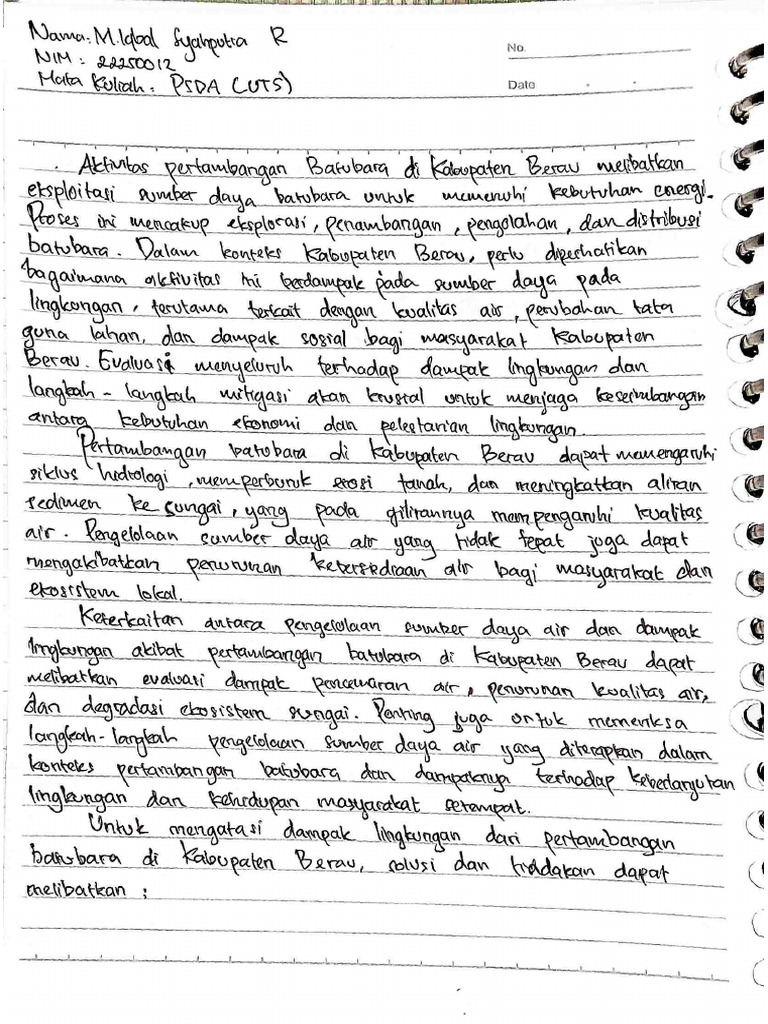 Nama: M.Iqbal Syahputra R
NIM : 22250012
Mata Kuliah : PSDA (UTS)
No.
Date
Aktivitas pertambangan Batubara di Kabupaten Berau melibatkan
eksploitasi sumber daya batubara untuk memenuhi kebutuhan energi.
Proses ini mencakup eksplorasi, penambangan, pengolahan, dan distribusi
batubara. Dalam konteks Kabupaten Berau, perlu diperhatikan
bagaimana aktivitas ini berdampak pada sumber daya pada
lingkungan, terutama terkait dengan kualitas air, perubahan tata
guna lahan, dan dampak sosial bagi masyarakat Kabupaten
Berau. Evaluasi menyeluruh terhadap dampak lingkungan dan
langkah-langkah mitigasi akan krusial untuk menjaga keseimbangan
antara kebutuhan ekonomi dan pelestarian lingkungan.
Pertambangan batubara di Kabupaten Berau dapat memengaruhi
siklus hidrologi, memperburuk erosi tanah, dan meningkatkan aliran
sedimen ke sungai, yang pada gilirannya mempengaruhi kualitas
air. Pengelolaan sumber daya air yang tidak tepat juga dapat
mengakibatkan penurunan ketersediaan air bagi masyarakat dan
ekosistem lokal.
Keterkaitan antara pengelolaan sumber daya air dan dampak
lingkungan akibat pertambangan batubara di Kabupaten Berau dapat
melibatkan evaluasi dampak pencemaran air, penurunan kualitas air,
dan degradasi ekosistem sungai. Penting juga untuk memeriksa
langkah-langkah pengelolaan sumber daya air yang diterapkan dalam
konteks pertambangan batubara dan dampaknya terhadap keberlanjutan
lingkungan dan kehidupan masyarakat setempat.
Untuk mengatasi dampak lingkungan dari pertambangan
batubara di Kabupaten Berau, solusi dan tindakan dapat
melibatkan :